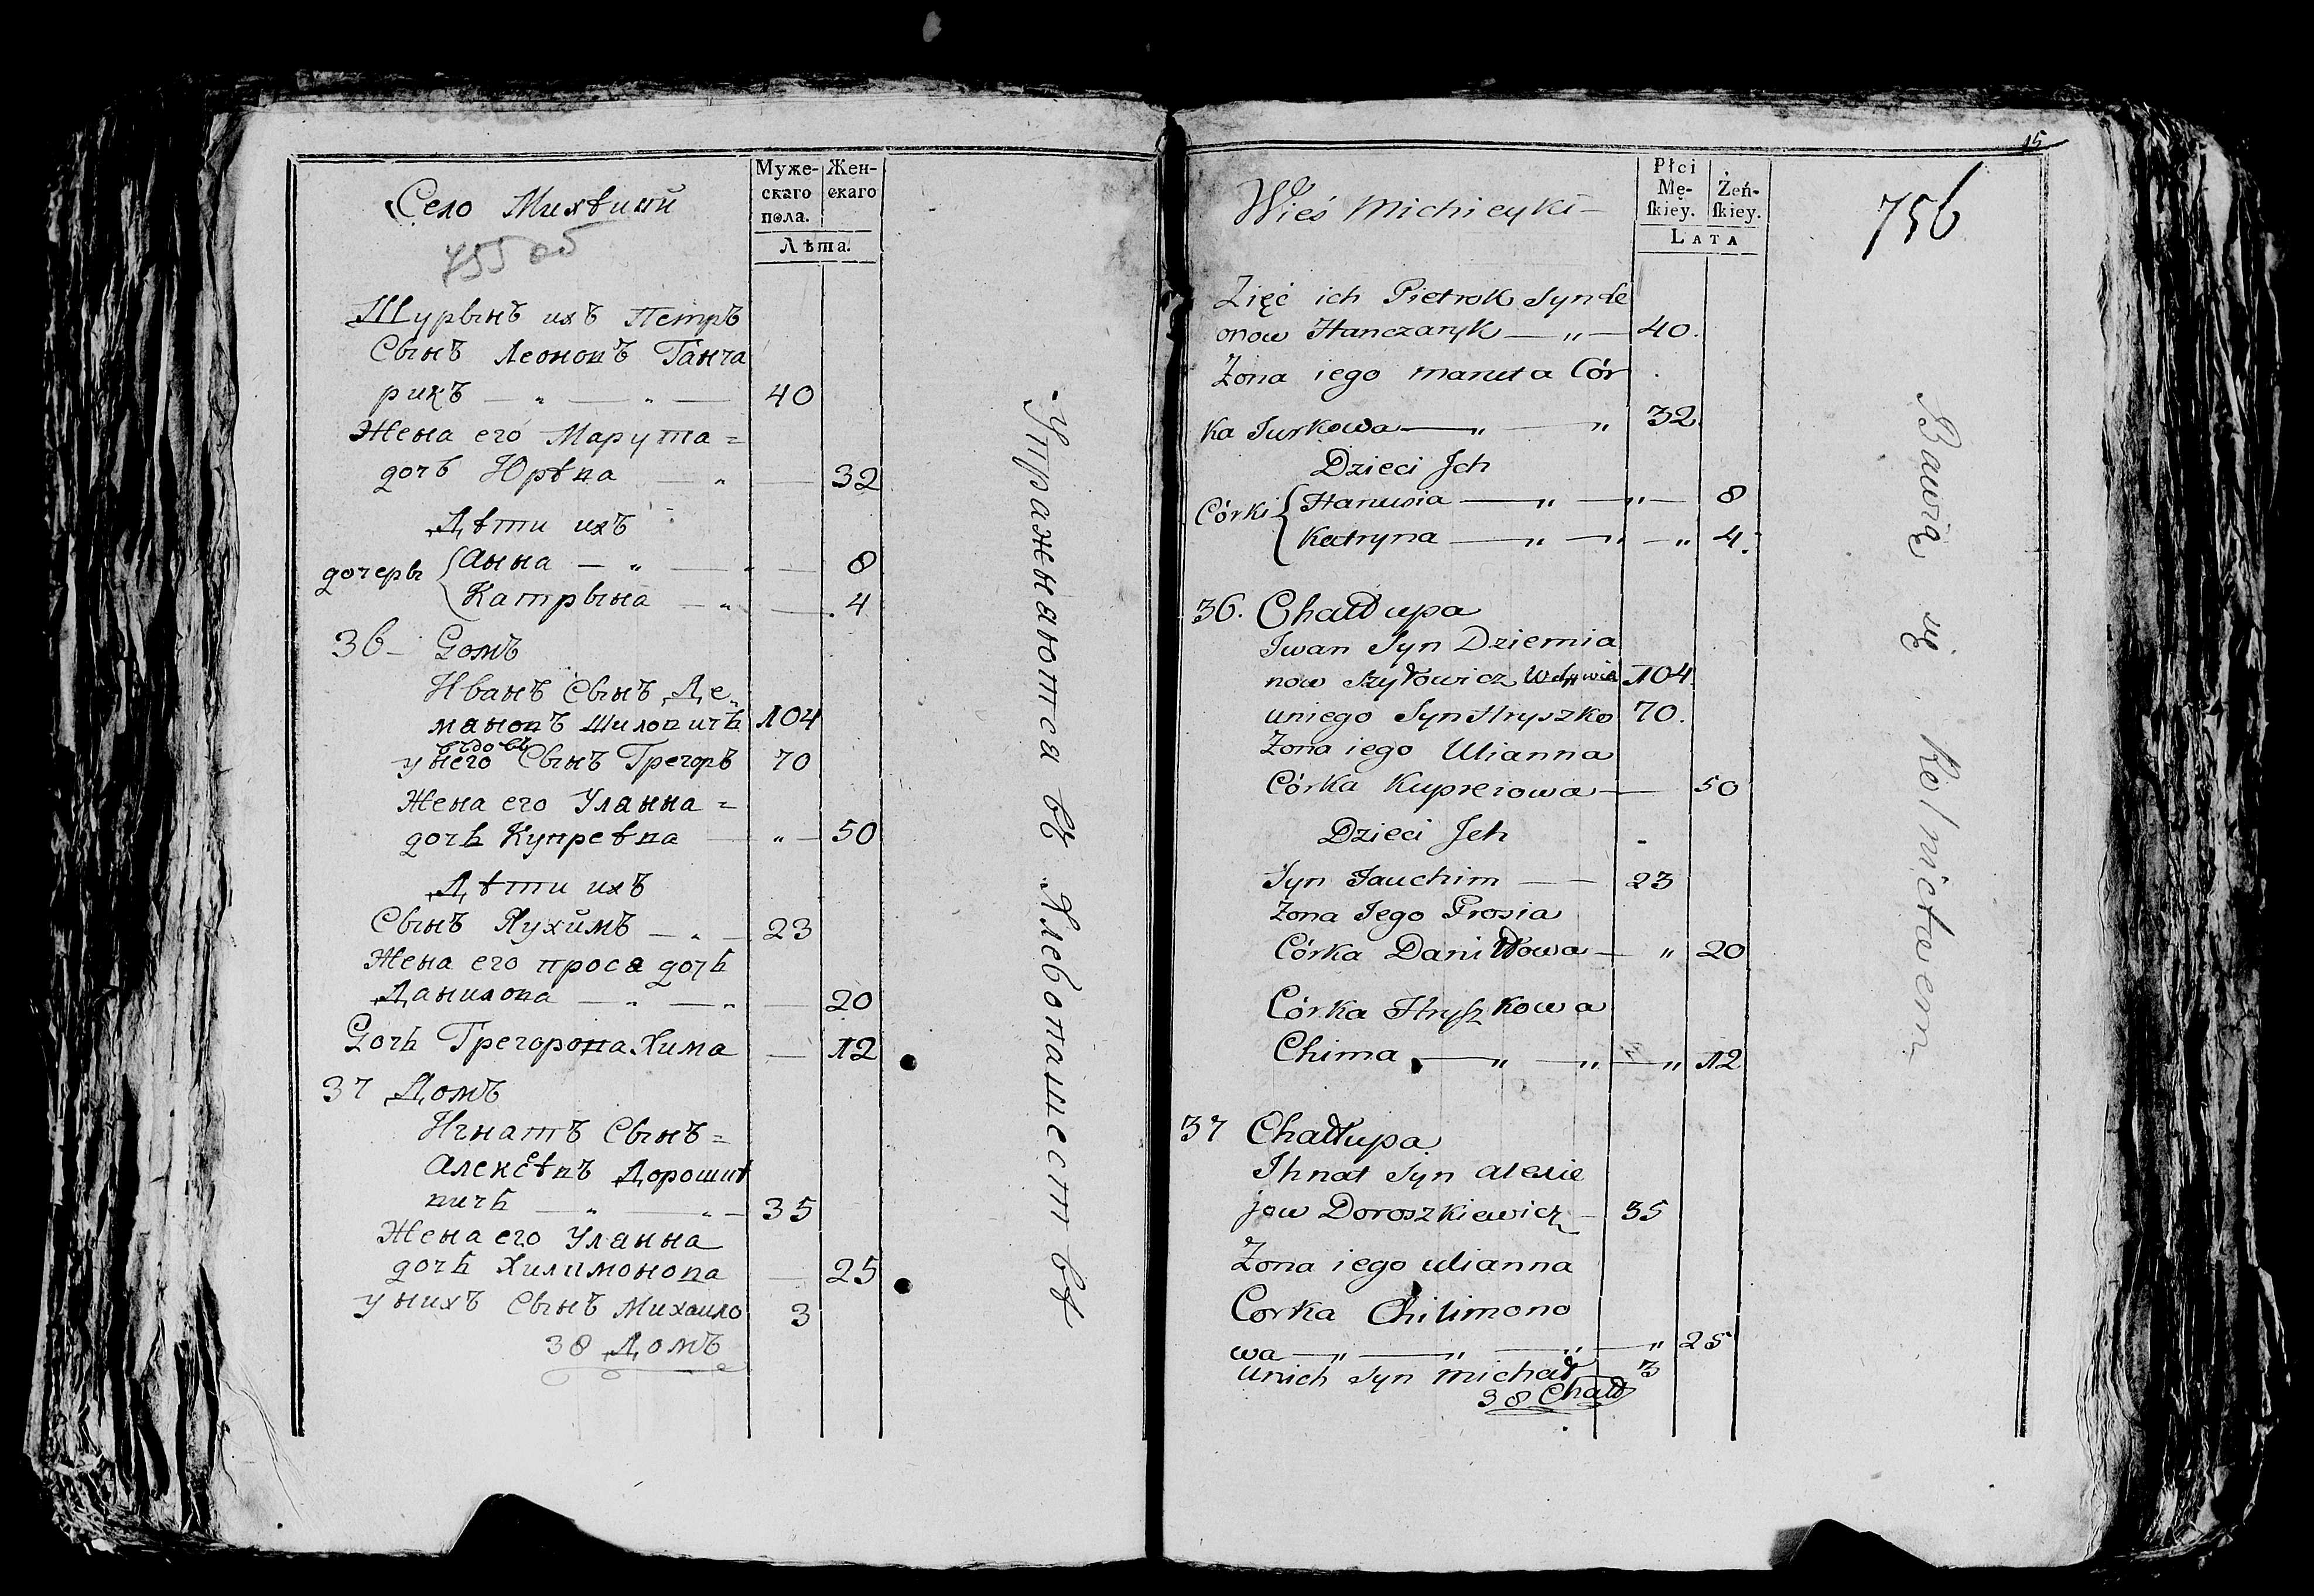 Село Михѣики
755 об
Муже-
скаго
пола.
Жен-
скаго
Лѣта.
Шурынъ ихъ Петръ
Сынъ Леоновъ Ганча
рикъ — „ — „ — 40
Жена его Марута =
дочь Юрѣва — „ — 32
Дѣти ихъ
дочеры { Анна — „ — „ — 8
Катрына — „ — 4
36 – Домъ
Иванъ Сынъ Де
мановъ Шиловичъ 104
вдовъ
у него Сынъ Грегоръ 70
Жена его Уланна =
дочь Купрѣва — „ — 50
Дѣти ихъ
Сынъ Яухимъ — „ — 23
Жена его прося дочь
Данилова — „ — „ — 20
Дочь Грегорова Хима — 12
37 Домъ
Игнатъ Сынъ =
Алексѣвъ Дорошкѣ
вичъ — „ — „ — 35
Жена его Уланна
дочь Хилимонова — 25
у нихъ Сынъ Михаило 3
38 Домъ
Упражнаютса въ Хлебопашествѣ
15
Wieś Michieyki
Płci
Mę-
skiey.
Żeń-
skiey.
LATA
756
Zięć ich Pietrok Syn Le
onow Hanczaryk — „ — 40.
Żona iego Maruta Cór
ka Jurkowa — „ — „ 32
Dzieci Ich
Córki { Hanusia — „ — „ — 8
Katryna — „ — „ — „ 4.
36. Chałłupa
Iwan Syn Dziemia
now Szyłowicz Wdowiec 104
u niego Syn Hryszko 70.
Żona iego Ulianna
Córka Kupreiowa — 50
Dzieci Ich
Syn Jauchim — 23
Żona Iego Prosia
Córka Daniłłowa — „ 20
Córka Hryszkowa
Chima — „ — „ — „ 12
37 Chałłupa
Ihnat Syn Alexie
jow Doroszkiewicz – 35
Żona iego Ulianna
Corka Chilimono
wa — „ — „ — „ — „ 25
u nich Syn Michał 3
38 Chałł
Bawią się Rolnictwem